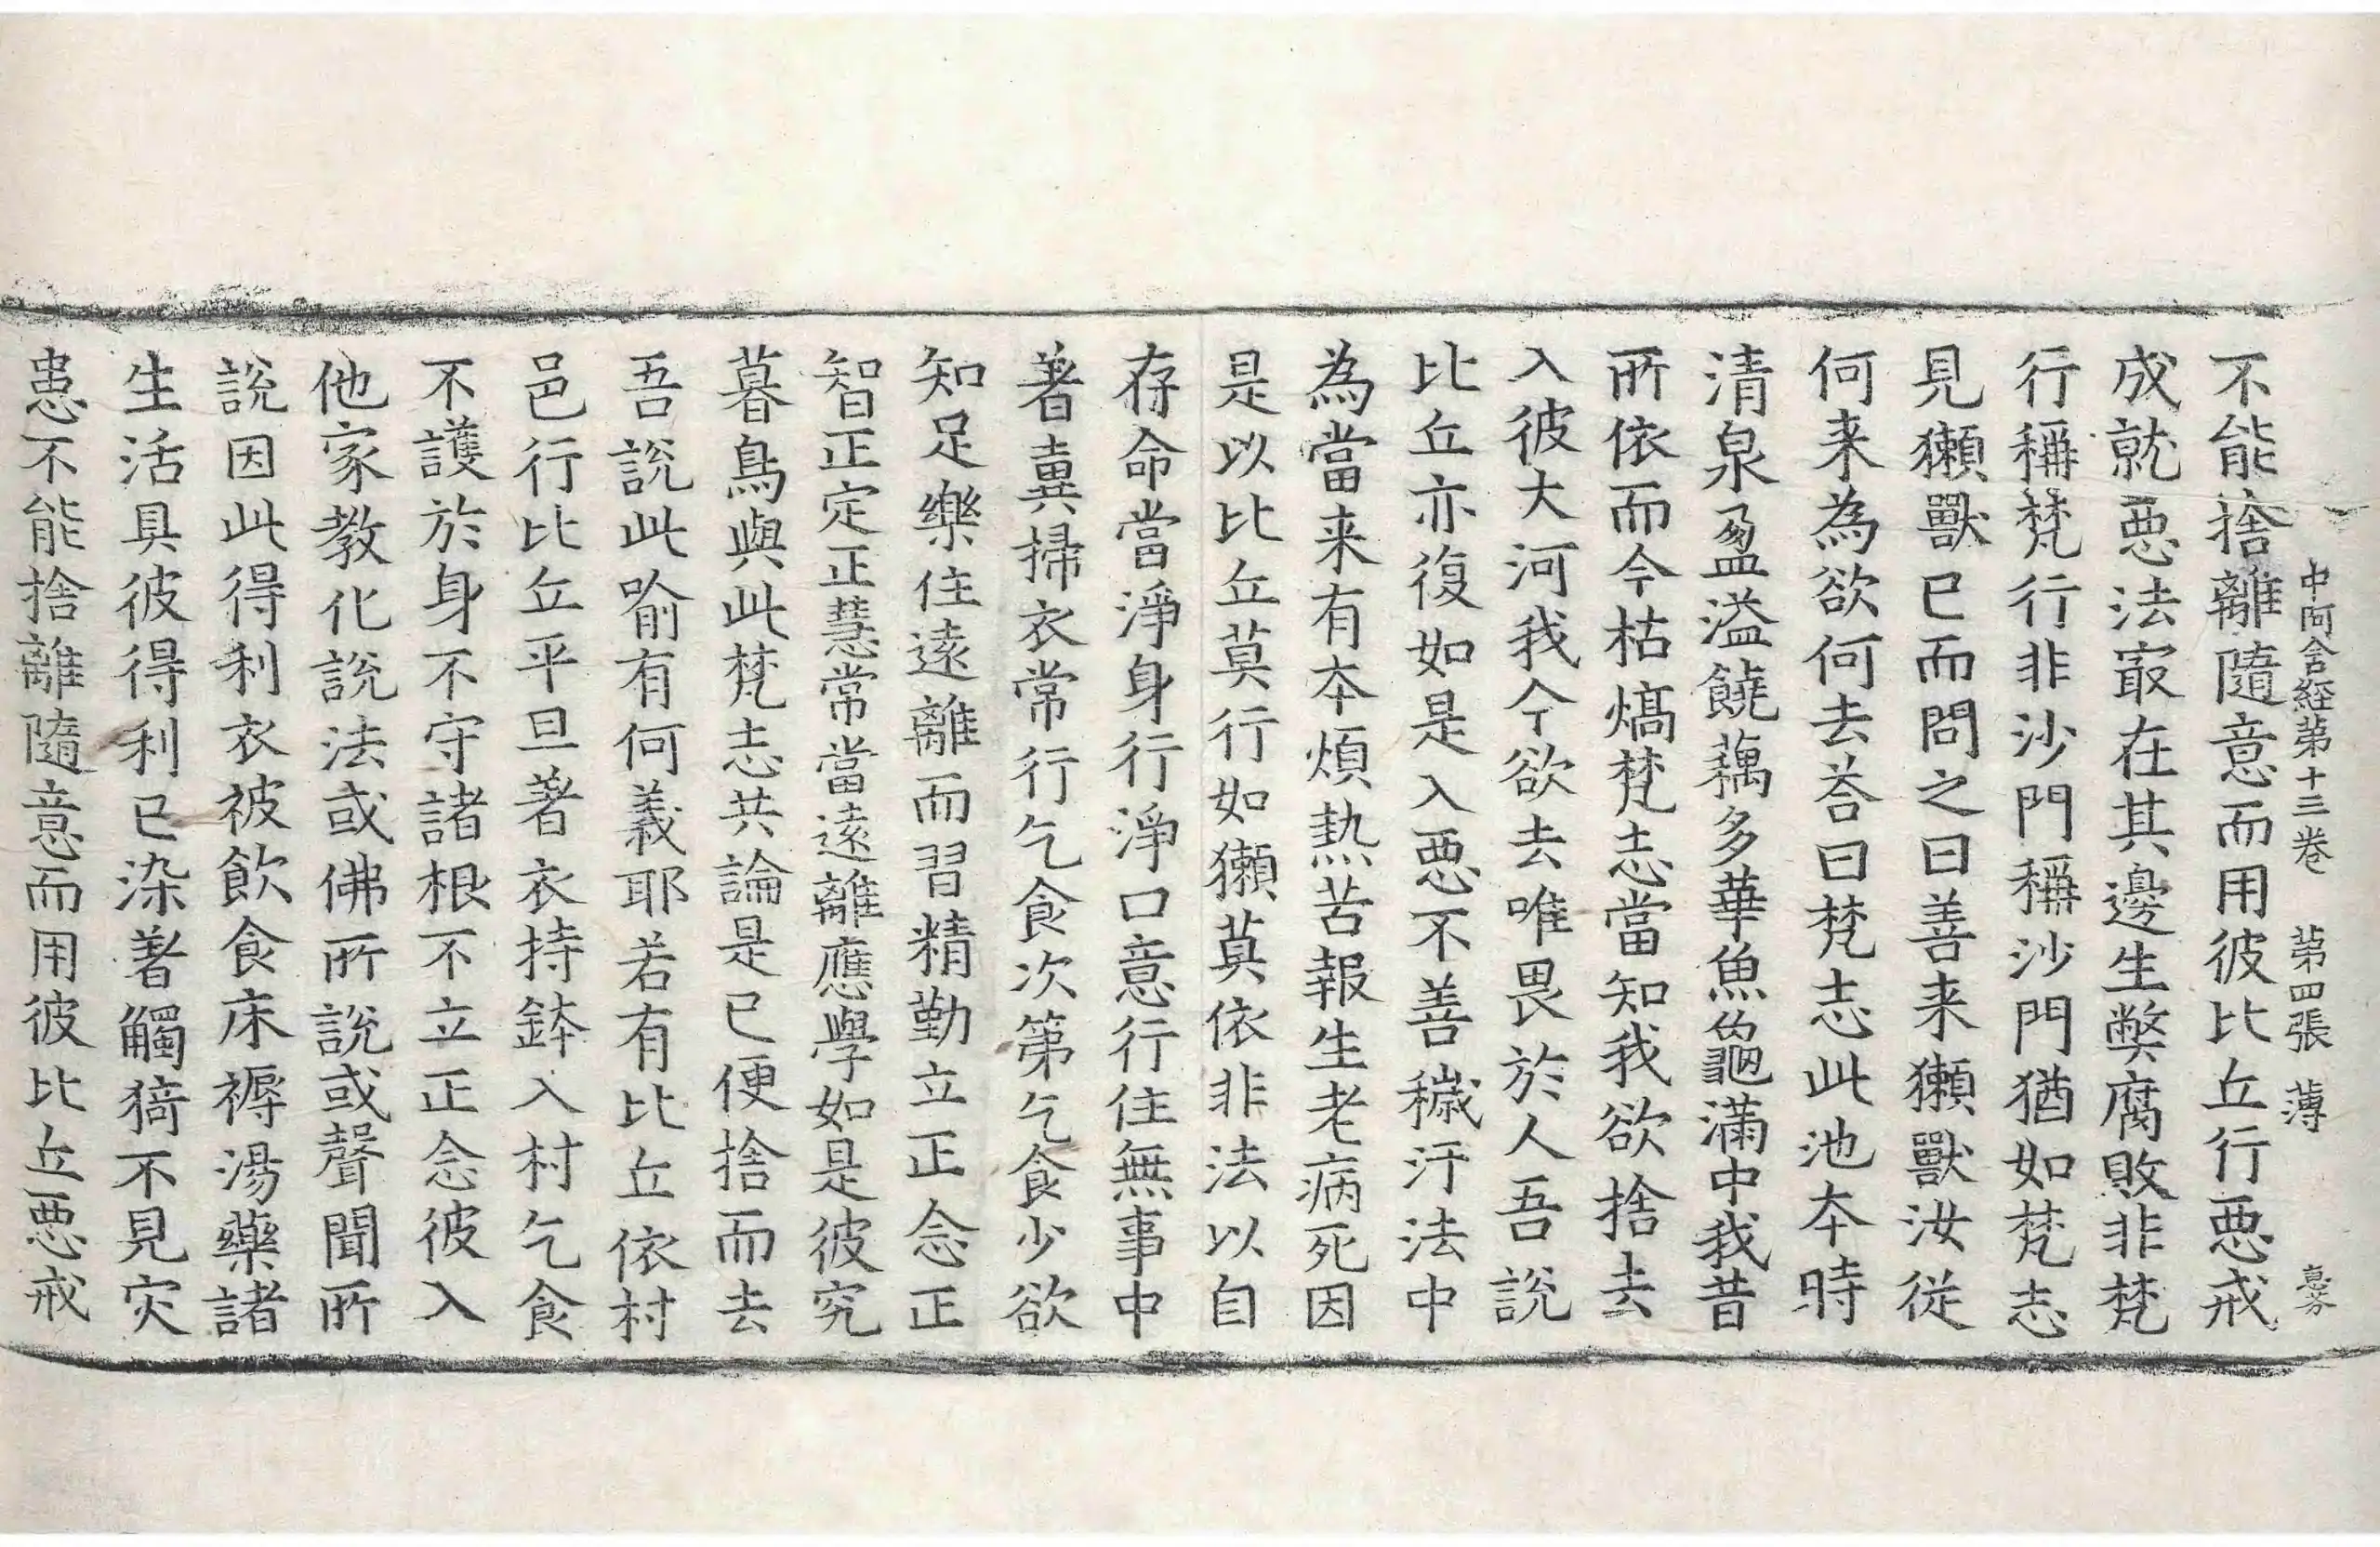 中阿含経第十三巻　第四張　薄
不能捨離隨意而用彼比丘行惡戒
成就惡法最在其邊生弊腐敗非梵
行稱梵行非沙門稱沙門猶如梵志
見獺獸已而問之曰善来獺獸汝従
何来為欲何去荅曰梵志此池本時
清泉盈溢饒藕多華魚龜滿中我昔
所依而今枯熇梵志當知我欲捨去
入彼大河我今欲去唯畏於人吾說
比丘亦復如是入惡不善穢汙法中
為當来有本煩熱苦報生老病死因
是以比丘莫行如獺莫依非法以自
存命當淨身行淨口意行住無事中
著糞掃衣常行乞食次第乞食少欲
知足樂住遠離而習精勤立正念正
智正定正慧常當遠離應學如是彼究
暮鳥與此梵志共論是已便捨而去
吾說此喻有何義耶若有比丘依村
邑行比丘平旦著衣持鉢入村乞食
不護於身不守諸根不立正念彼入
他家教化說法或佛所說或聲聞所
說因此得利衣被飲食床褥湯藥諸
生活具彼得利已染著觸猗不見灾
患不能捨離隨意而用彼比丘惡戒